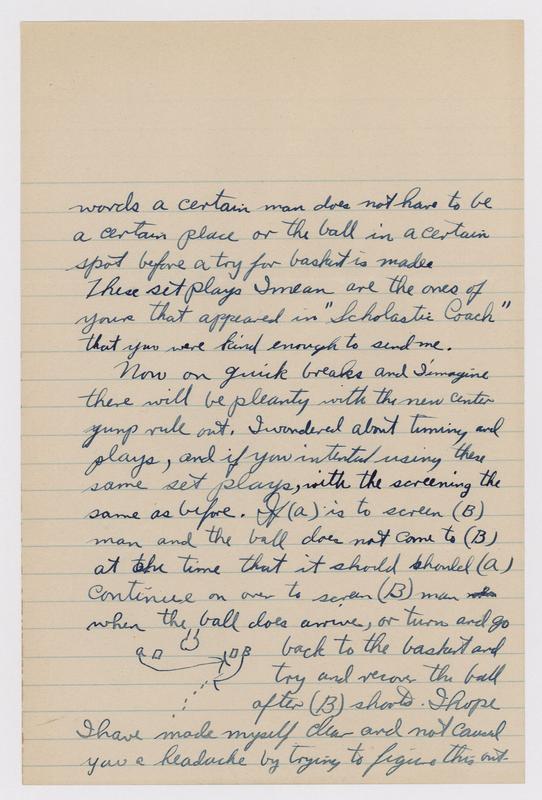 words a certain man does not have to be
a certain place or the ball in a certain
spot before a try for basket is made
These set plays I mean are the ones of
yours that appeared in "Scholastic Coach"
that you were kind enough to send me.
Now on quick breaks and I imagine
there will be pleanty with the new center
yump rule out. I wondered about timing and
plays, and if you intented using these
same set plays, with the screening the
same as before. If (a) is to screen (B)
man and the ball does not come to (B)
at the time that it should should (a)
continue on over to screen (B) man
when the ball does arrive, or turn and go
a B back to the basket and
try and recover the ball
after (B) shorts. I hope
I have made myself clear and not caused
you a headache by trying to figure this out.